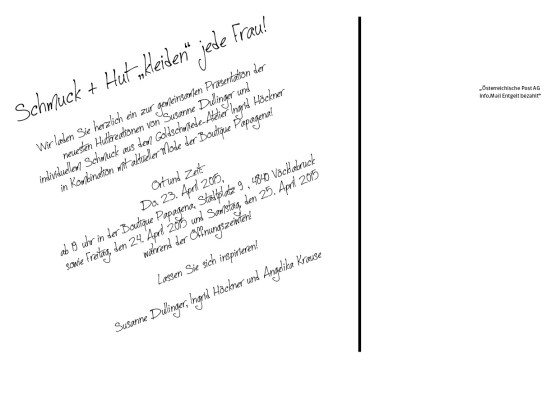 Schmuck + Hut „kleiden“ jede Frau!
Wir laden Sie herzlich ein zur gemeinsamen Präsentation der
neuesten Hutkreationen von Susanne Dullinger und
individuellem Schmuck aus dem Goldschmiede-Atelier Ingrid Höckner
in Kombination mit aktueller Mode der Boutique Papagena!
Ort und Zeit:
Do. 23. April 2015,
ab 19 uhr in der Boutique Papagena, Stadtplatz 9 , 4840 Vöcklabruck
sowie Freitag, den 24. April 2015 und Samstag, den 25. April 2015
während der Öffnungszeiten!
Lassen Sie sich inspirieren!
Susanne Dullinger, Ingrid Höckner und Angelika Krause
„Österreichische Post AG
Info.Mail Entgelt bezahlt“